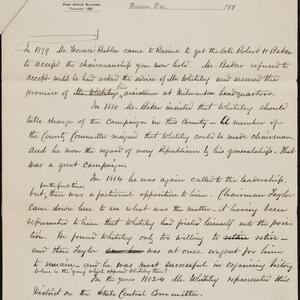 POST OFFICE BUILDING
Racine, Wis. 188
In 1879 Mr. Horace Rublee came to Racine to get the late Robert H Baker
to accept the chairmanship you now hold. Mr. Baker refused to
accept until he had asked the advice of Mr. Whiteley and secured the
promise of his assistance at Milwaukee headquarters.
In 1880 Mr. Baker insisted that Whiteley should
take charge of the campaign in this County – member of
the County Committee resigned that Whiteley could be made chairman
and he won the regard of every Republican by his generalship. That
was a great campaign.
In 1884 he was again called to the leadership,
but, for the first time, there was a factional opposition to him. Chairman Taylor
came down here to see what was the matter – it having been
represented to him that Whiteley had foisted himself into the posi-
tion. He found Whiteley only too willing to retire –
and then Taylor was at once urgent for him
to remain, and he was most successful in organizing victory
Where is the gang which opposed Whiteley then?
In the years 1882-4 Mr. Whiteley represented this
District on the State Central Committee.